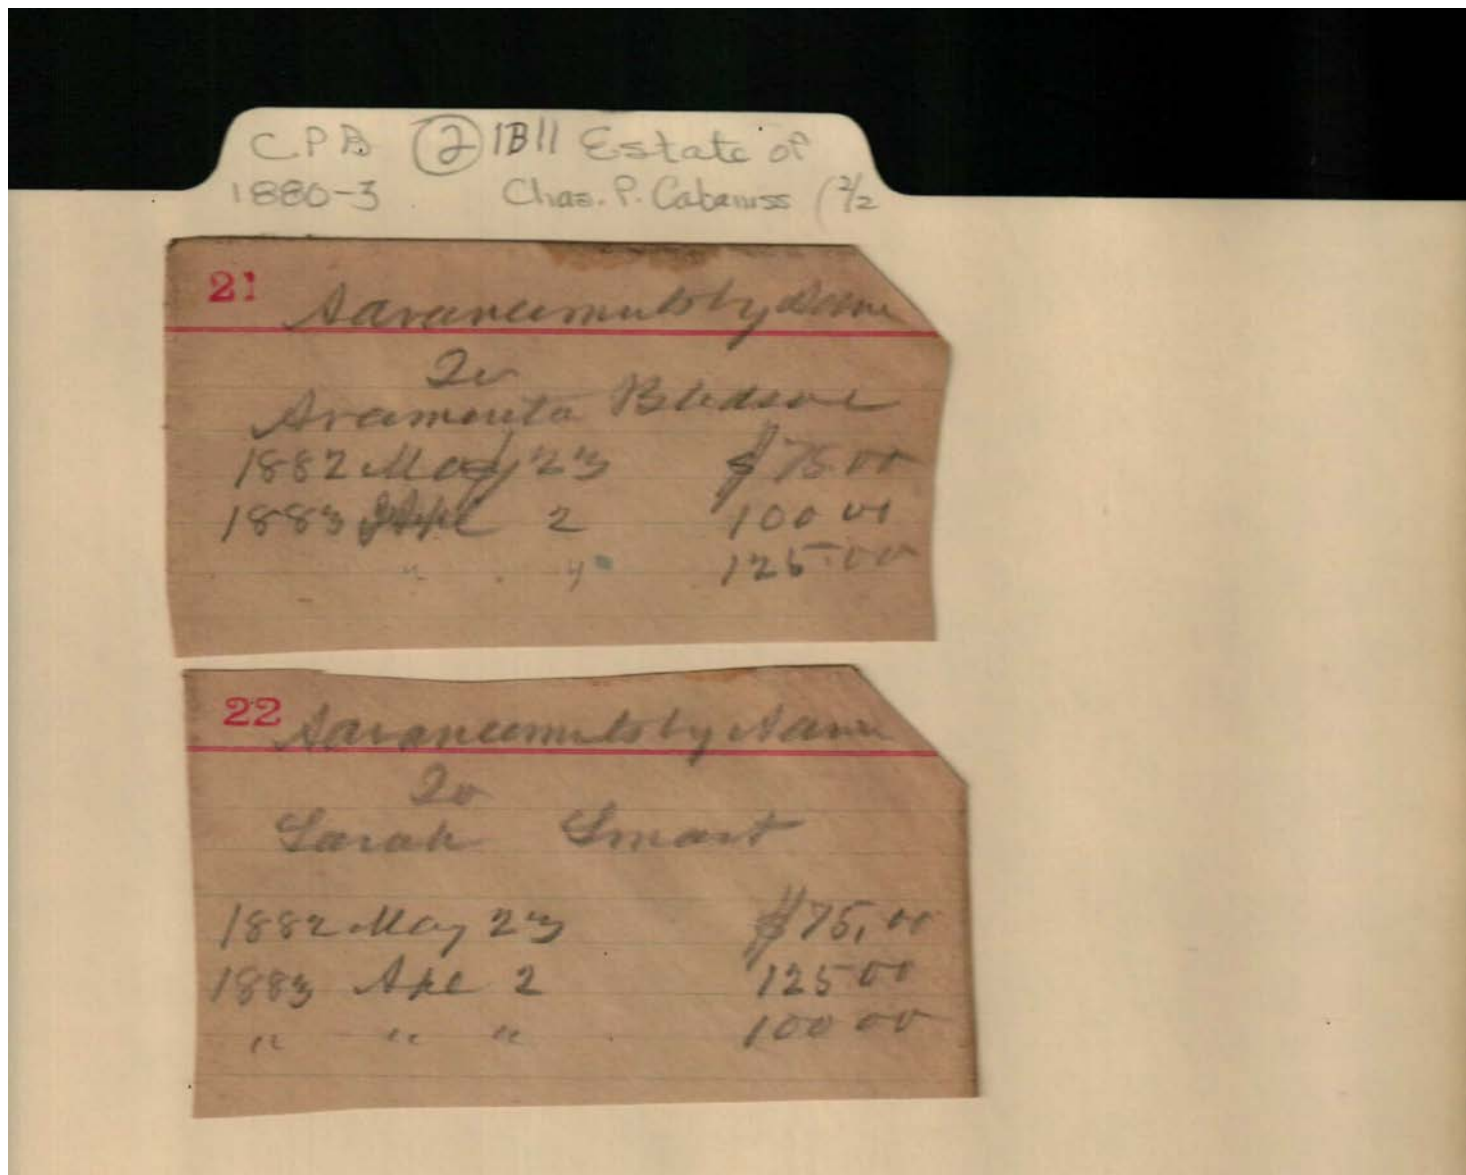 CPB ② 1B11 Estate of
1880-3 Chas. P. Cabaniss (2/2
21
Advancements by
To
Araminta Bledsoe
1882 May 23 $75.00
1883 Apl 2 100 00
" " 125.00
22
Advancements by
To
Sarah Smart
1882 May 23 $75,00
1883 Apl 2 125 00
" " " 100 00